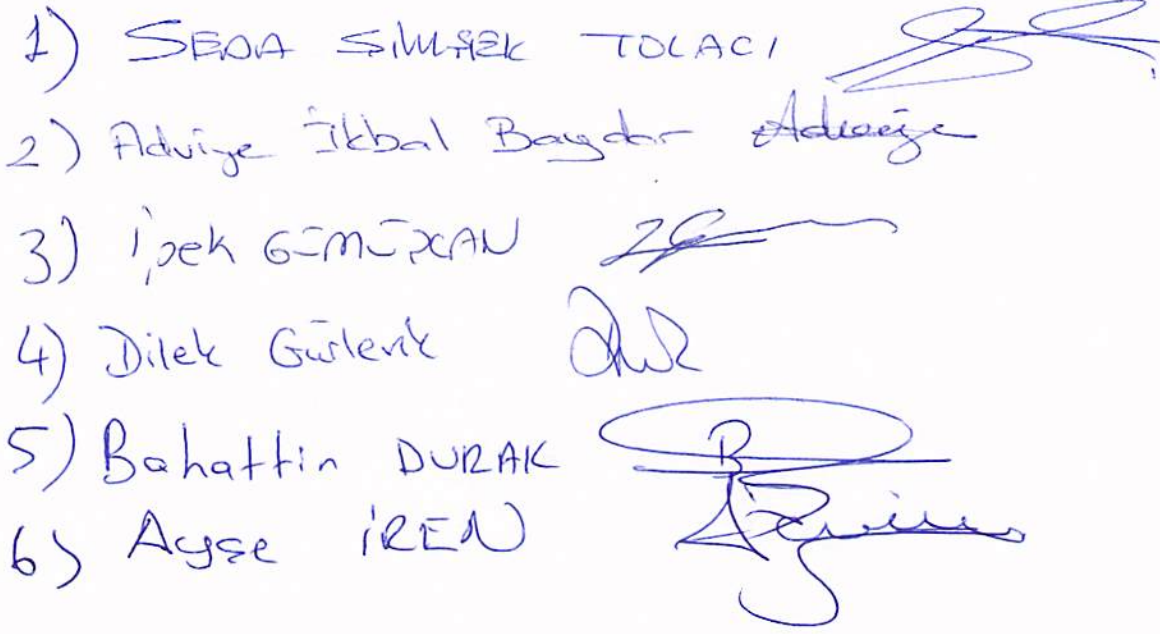 1) SEDA SİMŞEK TOLACI
2) Adviye İkbal Baydar Adviye
3) İpek GÜMÜŞCAN
4) Dilek Gürlevik
5) Bahattin DURAK
6) Ayşe İREN